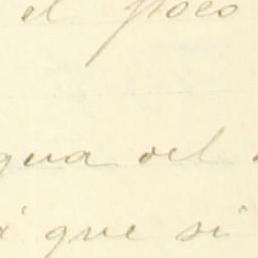 el poco
gua del
que si